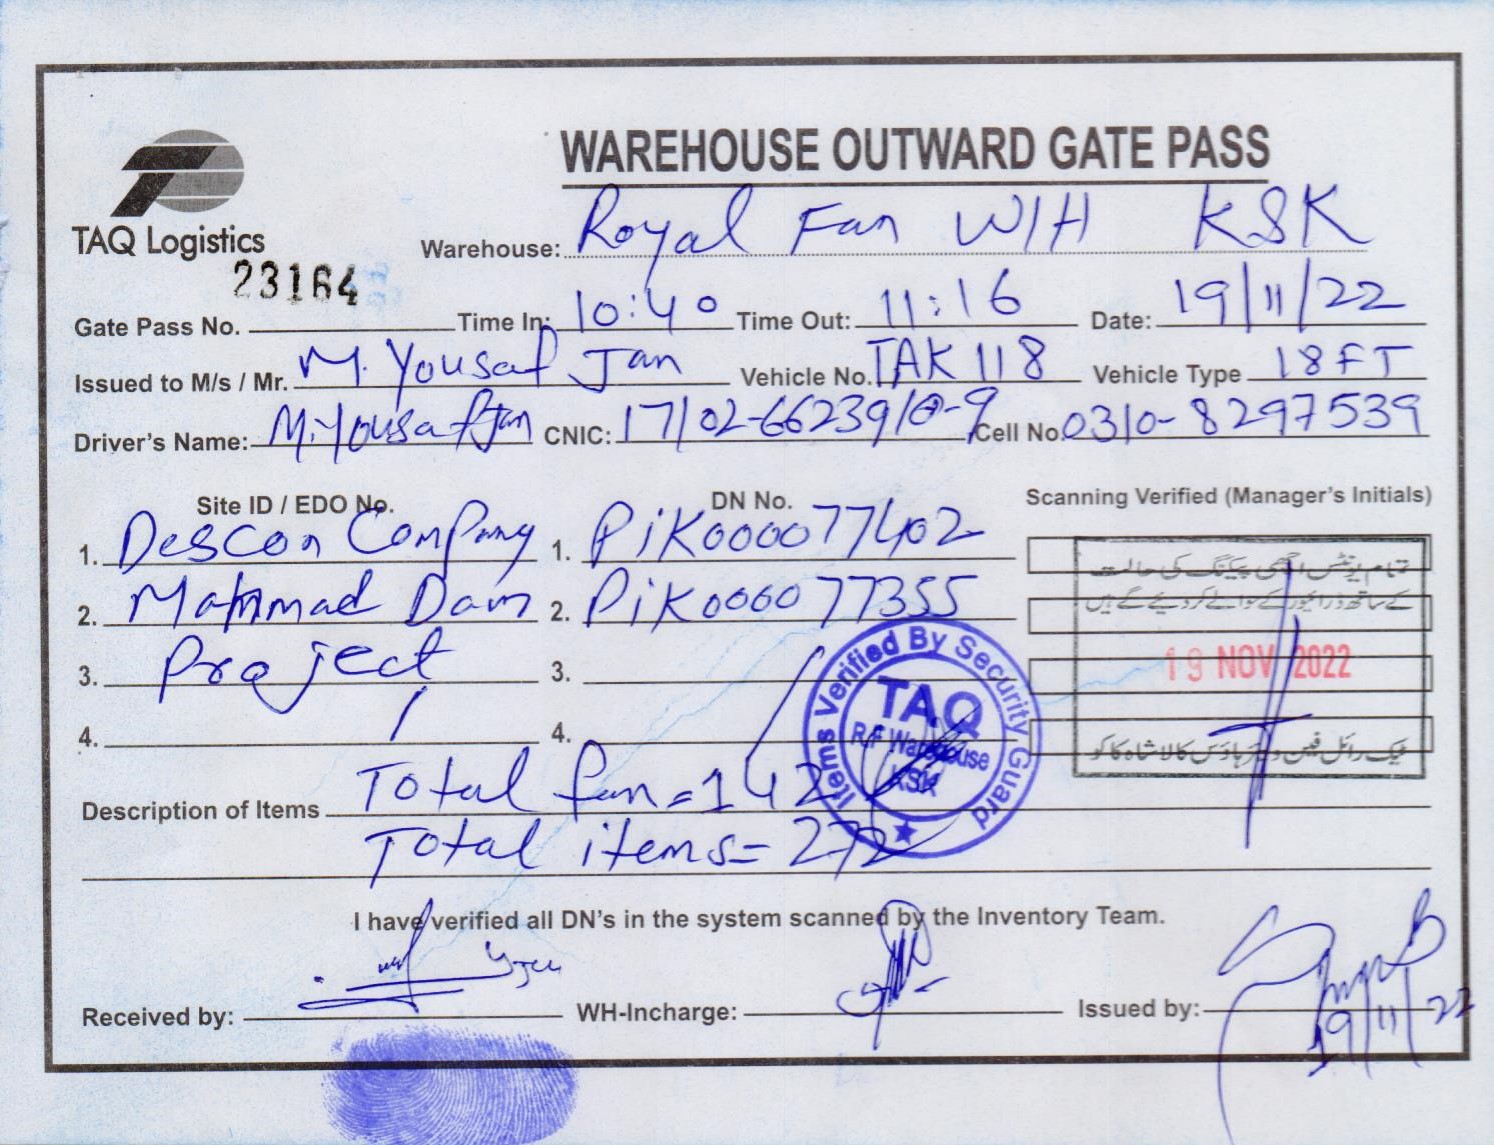 WAREHOUSE OUTWARD GATE PASS
TAQ Logistics
Warehouse: Royal Fan W/H KSK
23164
Gate Pass No. Time In: 10:40 Time Out: 11:16 Date: 19/11/22
Issued to M/s / Mr. M. Yousaf Jan Vehicle No. TAK 118 Vehicle Type 18FT
Driver's Name: M. Yousaf Jan CNIC: Cell No. 0310-8297539
Site ID / EDO No. DN No. Scanning Verified (Manager's Initials)
1. Descon Company 1. PiK000077402
2. Mahmmad Dam 2. PiK000077355
3. Project 3.
4. 4.
تمام یونٹس اچھی پیکنگ کی حالت
کے ساتھ ڈرائیور کے حوالے کر دیئے گئے ہیں
19 NOV 2022
Items Verified By Security Guard
TAQ
R/F Warehouse
KSK
Description of Items Total fan = 142
Total items = 272
I have verified all DN's in the system scanned by the Inventory Team.
Received by: WH-Incharge: Issued by:
19/11/22